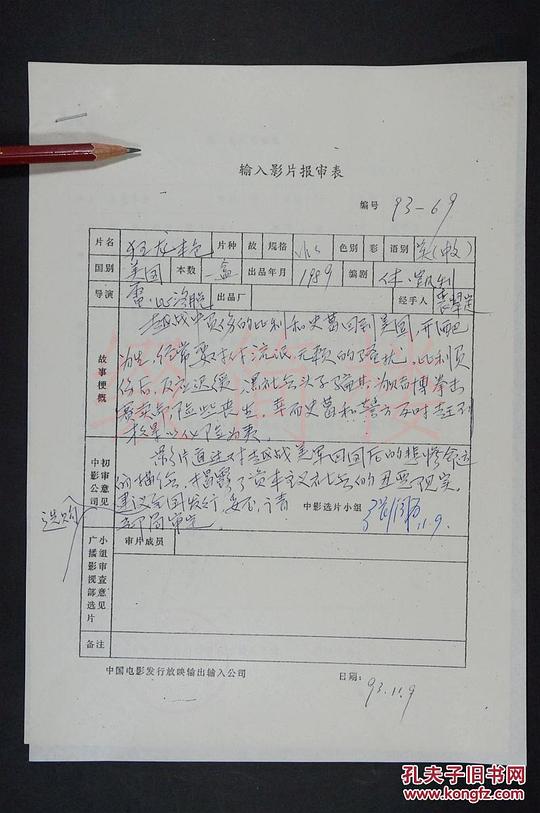 输入影片报审表
编号 93-69
片名 狂龙本色 片种 故 规格 色别 彩 语别 英(中文)
国别 美国 本数 一盒 出品年月 1989 编剧 休·凯利
导演 雷· 出品厂 经手人
故事梗概
越战中负伤的比利和史葛回到美国,开酒吧
为生,经常要打付流氓无赖的骚扰,比利负
伤后,反应迟缓,黑社会头子骗其为他的博拳击
赛卖命,险些丧生,幸而史葛和警方及时赶到
中影公司初审意见
影片通过对越战美军回国后的悲惨命运
的描何,揭露了资本主义社会的丑恶现实,
建议全国发行,妥否,请
部局审定。 中影选片小组 11.9.
选购
广播影视部选片小组审查意见
审片成员
备注
中国电影发行放映输出输入公司
日期: 93.11.9
孔夫子旧书网
www.kongfz.com